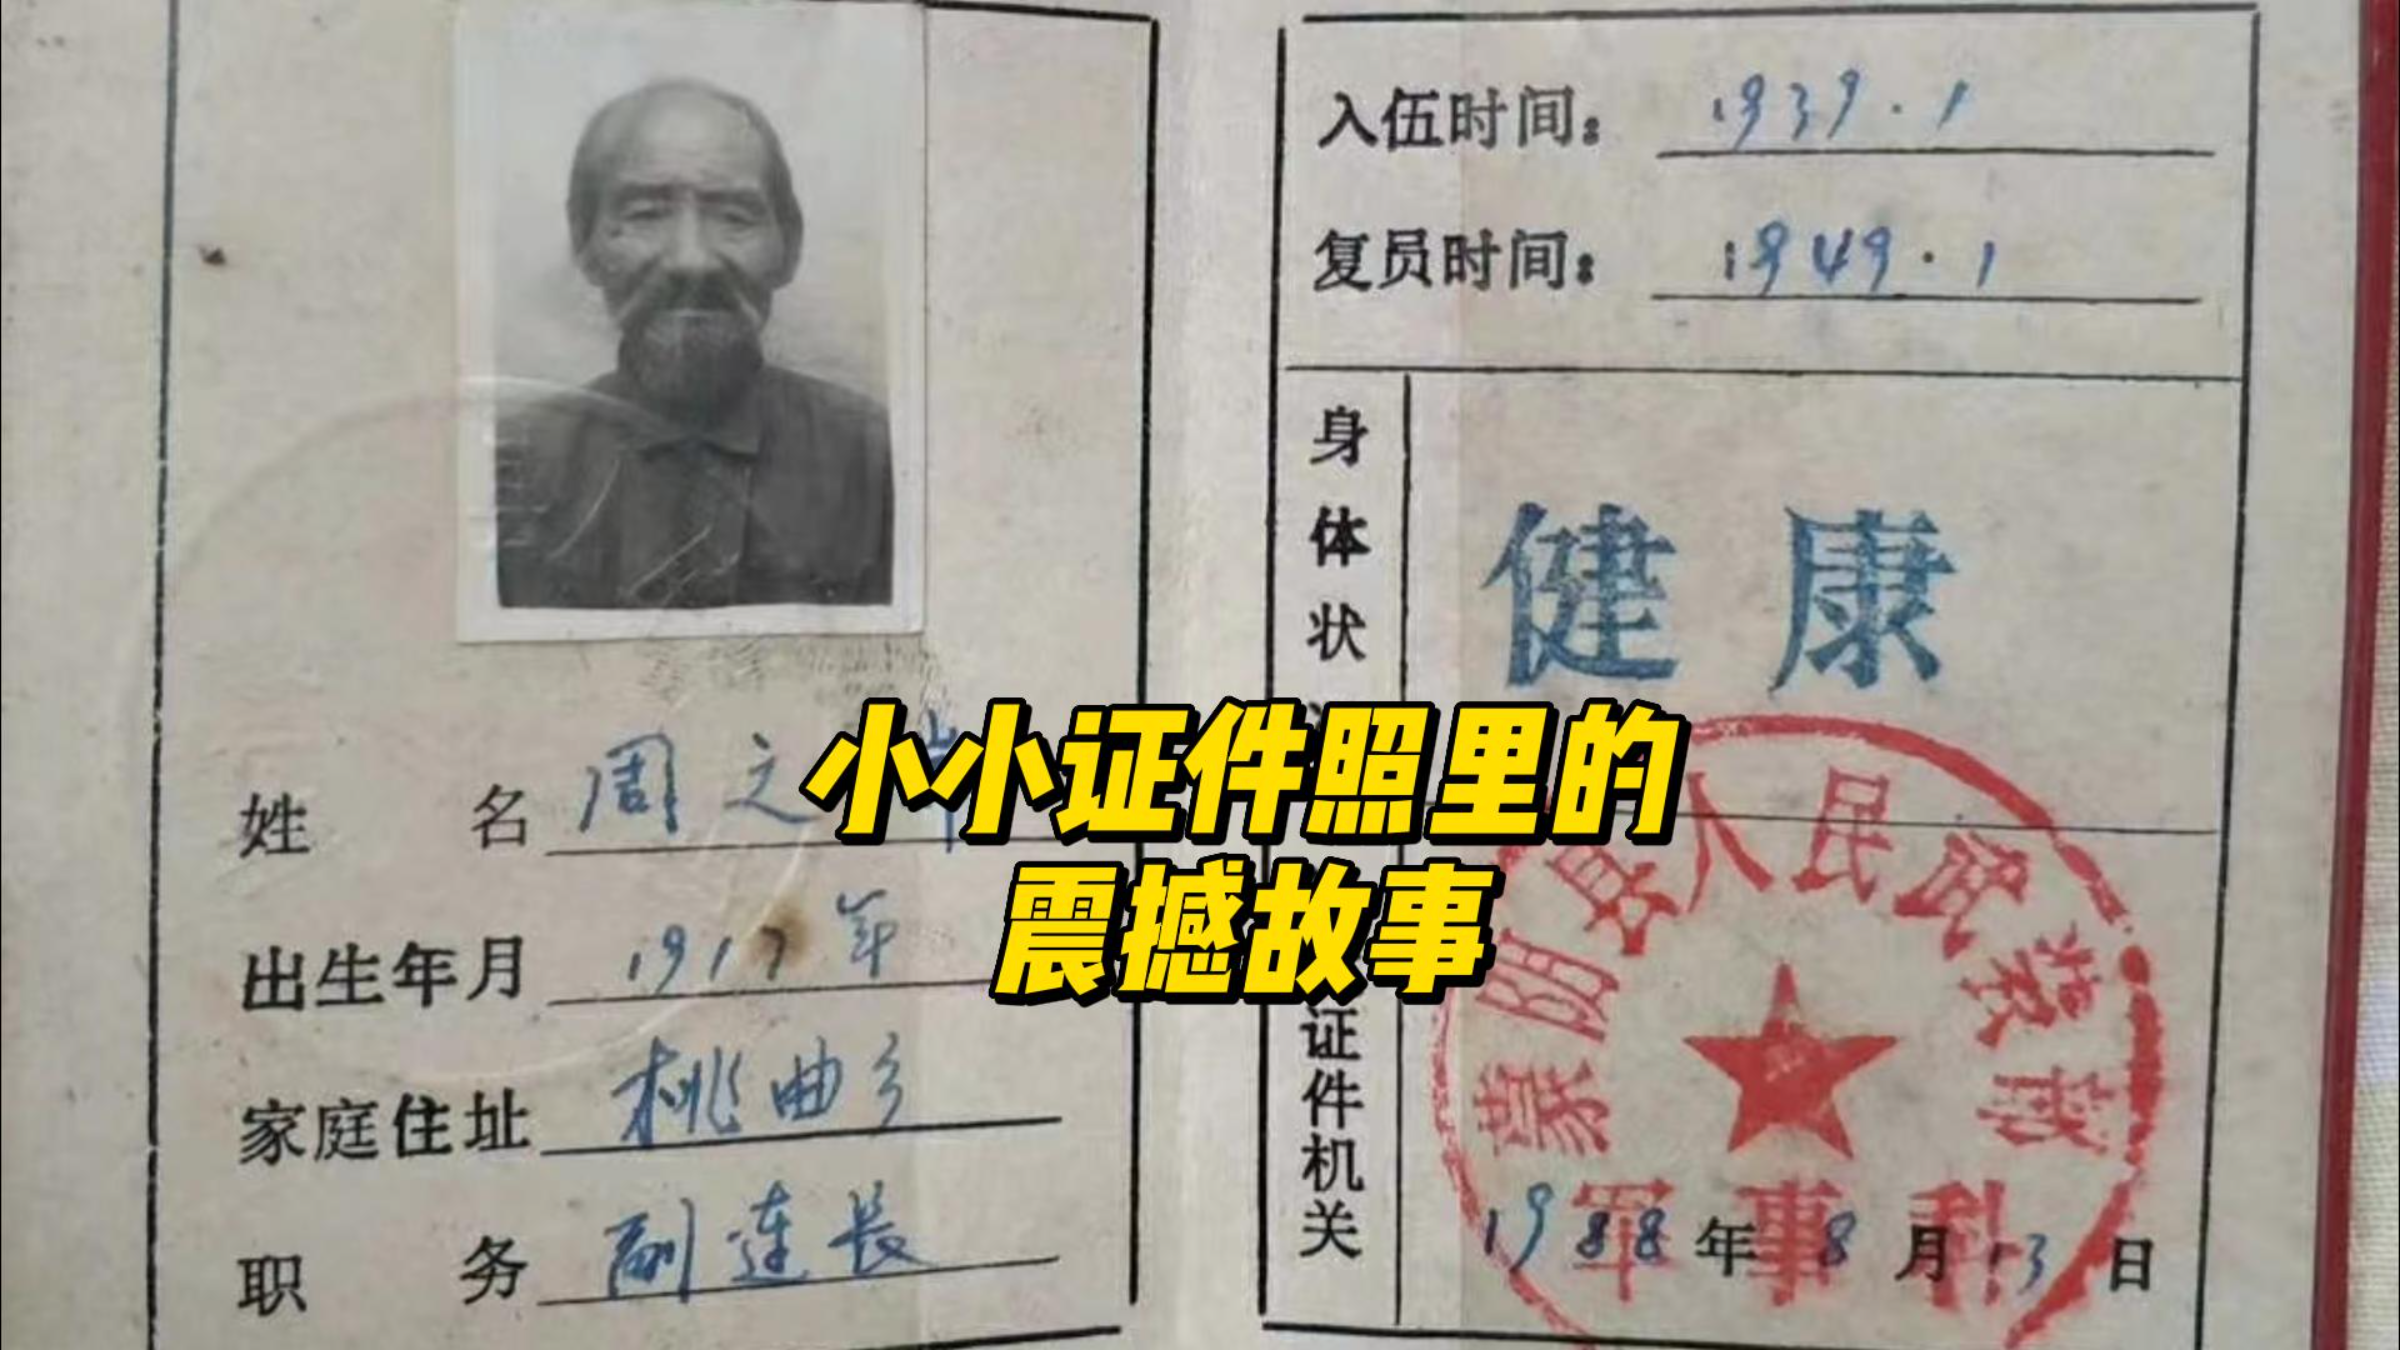 入伍时间：1939.1
复员时间：1949.1
身体状
健康
姓名 周文
出生年月 1917年
家庭住址 桃曲乡
职务 副连长
小小证件照里的
震撼故事
证件机关
蒙阴县人民武装部
军事科
1988年8月13日